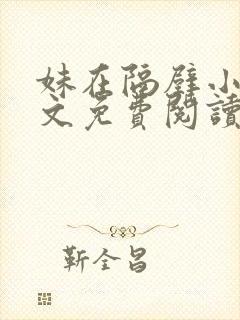 妹在隔壁小
文免費閱讀
靳全昌